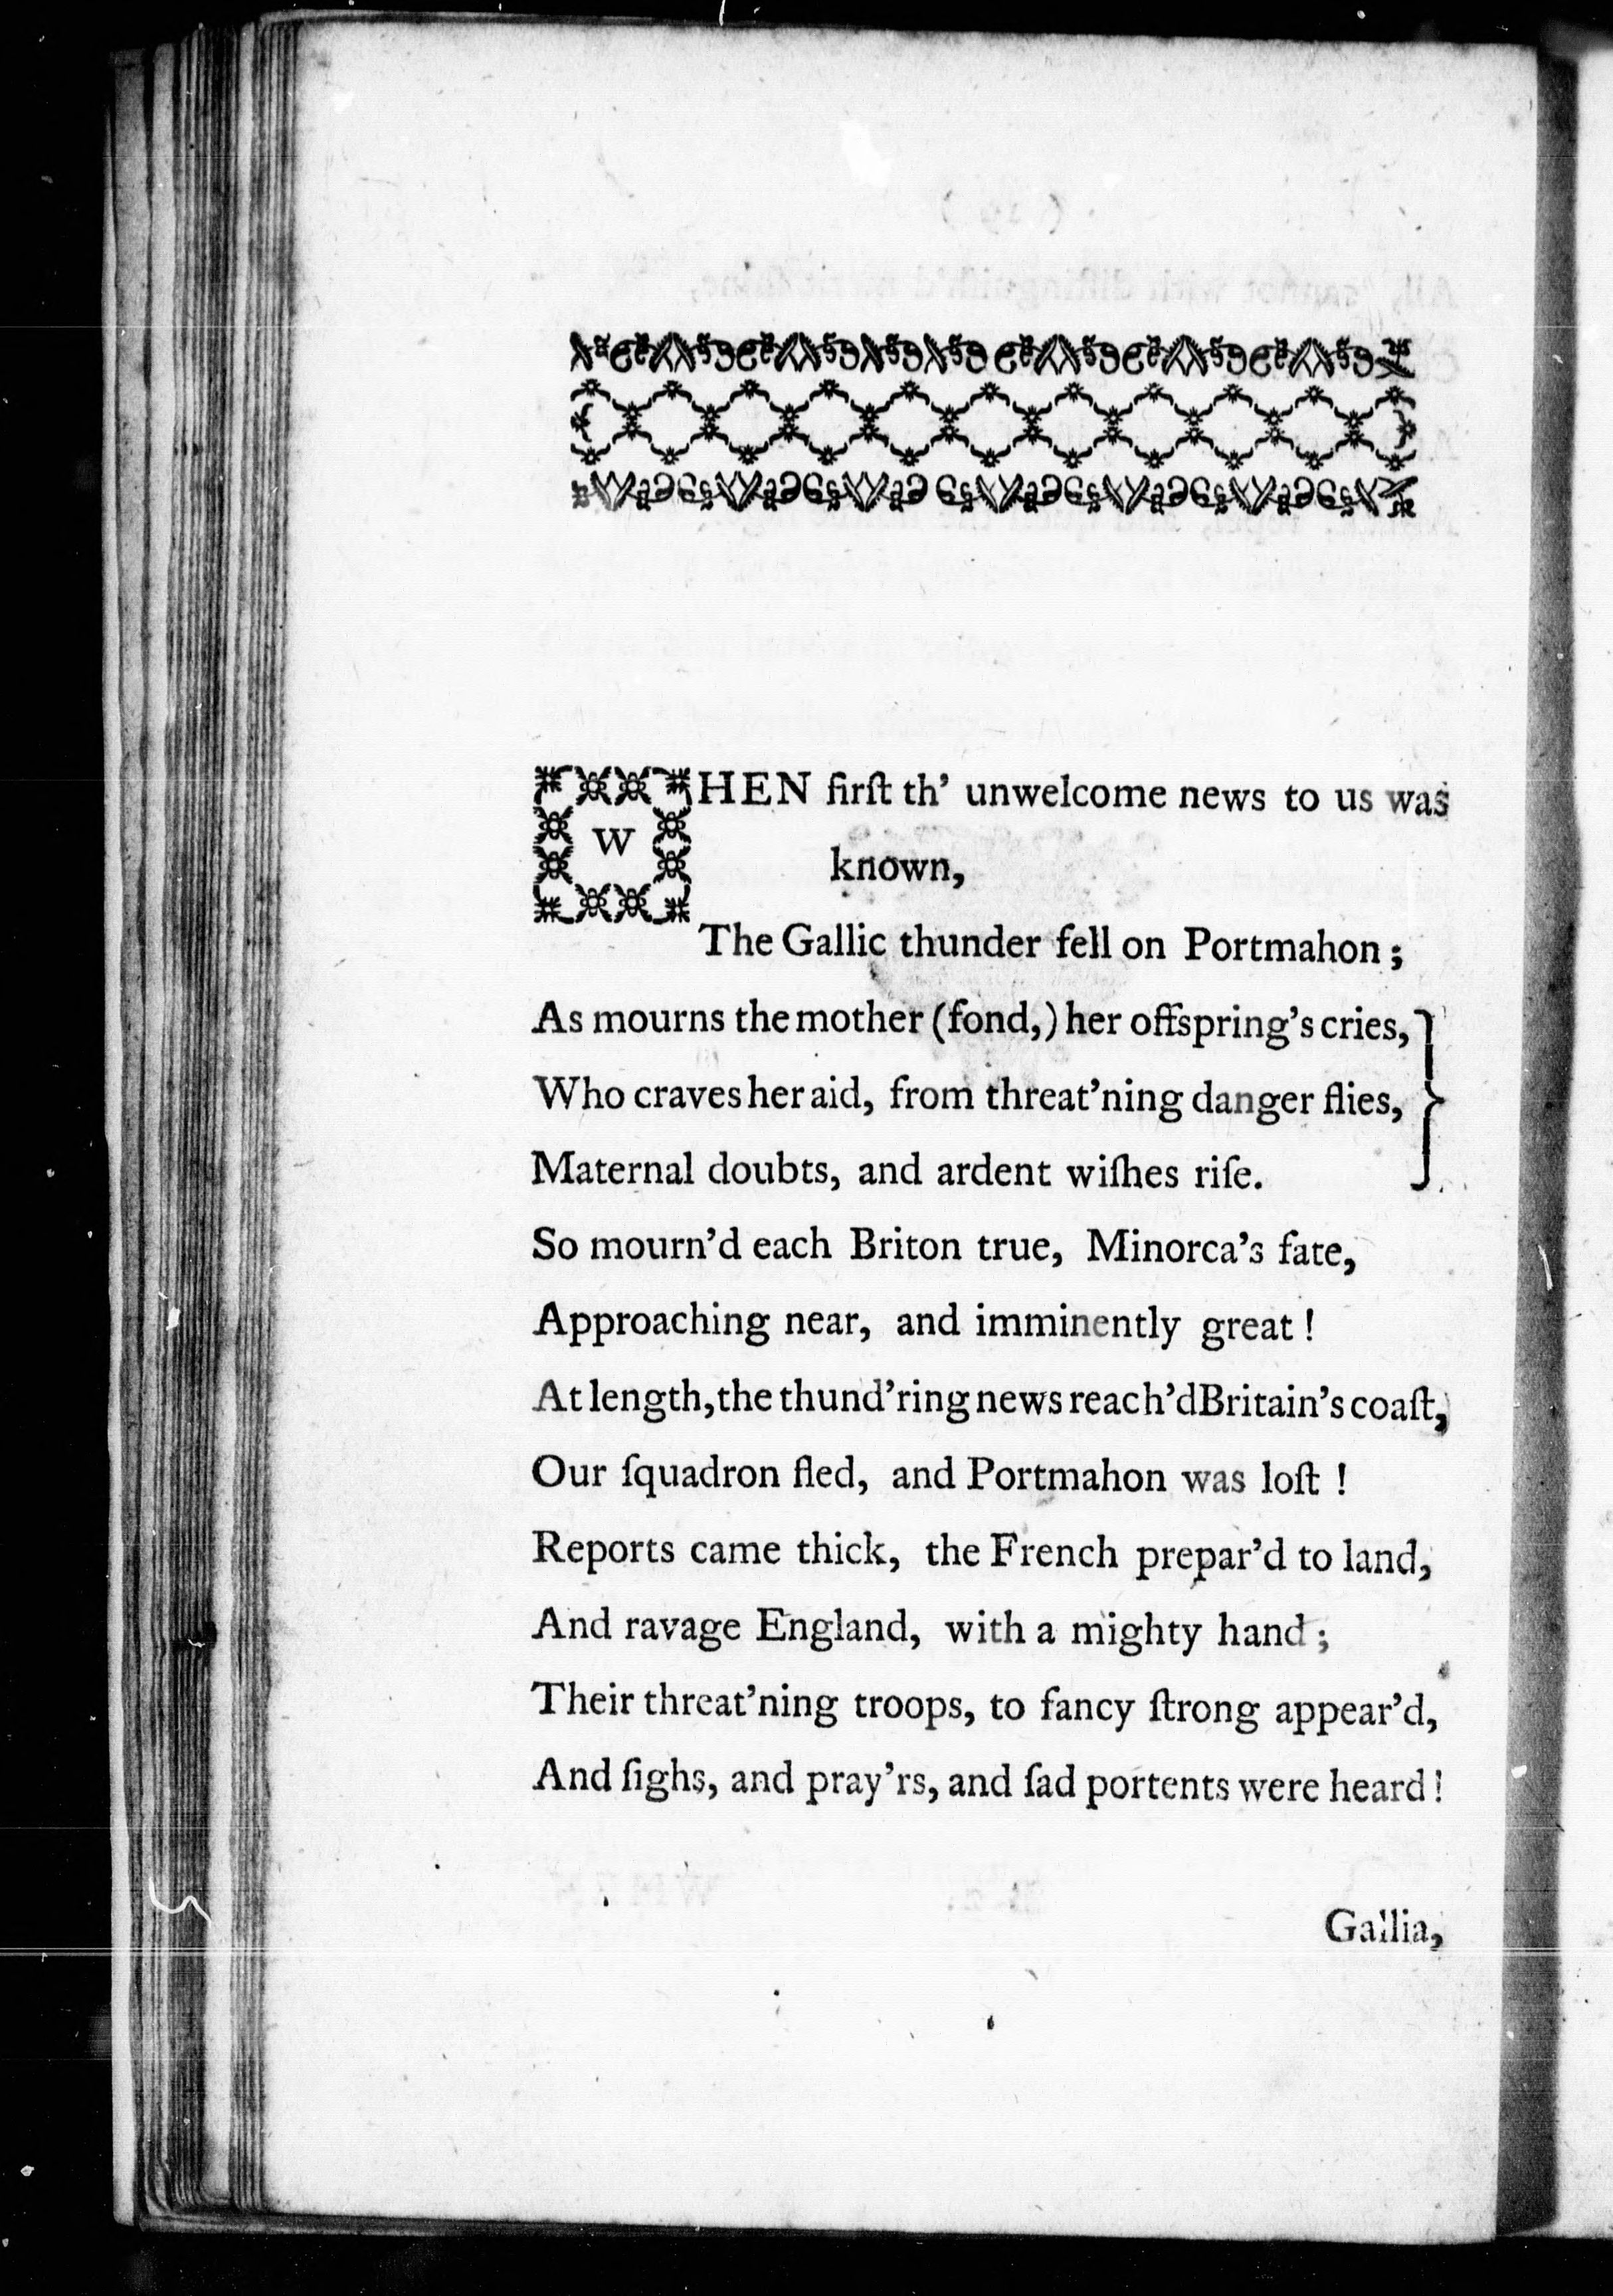 WHEN firſt th' unwelcome news to us was
known,
The Gallic thunder fell on Portmahon;
As mourns the mother (fond,) her offspring's cries,
Who craves her aid, from threat'ning danger flies,
Maternal doubts, and ardent wiſhes riſe.
So mourn'd each Briton true, Minorca's fate,
Approaching near, and imminently great!
At length, the thund'ring news reach'd Britain's coaſt,
Our ſquadron fled, and Portmahon was loſt!
Reports came thick, the French prepar'd to land,
And ravage England, with a mighty hand;
Their threat'ning troops, to fancy ſtrong appear'd,
And ſighs, and pray'rs, and ſad portents were heard!
Gallia,